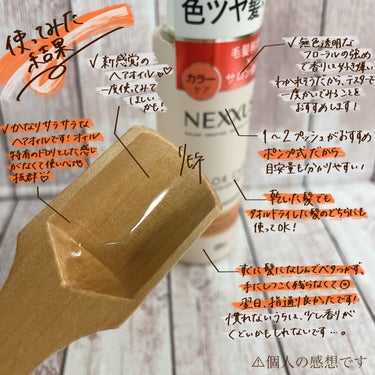 使ってみた
結果
✓新感覚の
ヘアオイル♡
一度使ってみて
ほしい
かも!
✓かなりサラサラな
ヘアオイルです!オイル
特有のドロリとした感じ
がなくて使い心地
抜群♡
色ツヤ髪
カラー
ケア
NEXXUS
✓無色透明な
フローラルの強め
で香りに好き嫌い
わかれそうだから、テスターで
一度かいでみることを
おすすめします!
1~2プッシュがおすすめ
ポンプ式だから
目安量も分かりやすい!
乾いた髪でも
タオルドライした髪のどちらにも
使ってOK!
すぐに髪になじんでベタつかず、
手にしつこく残らなくて◎
翌日、指通り良かったです!
慣れないうちは、少し香りが
くどいかもしれないです…。
⚠個人の感想です